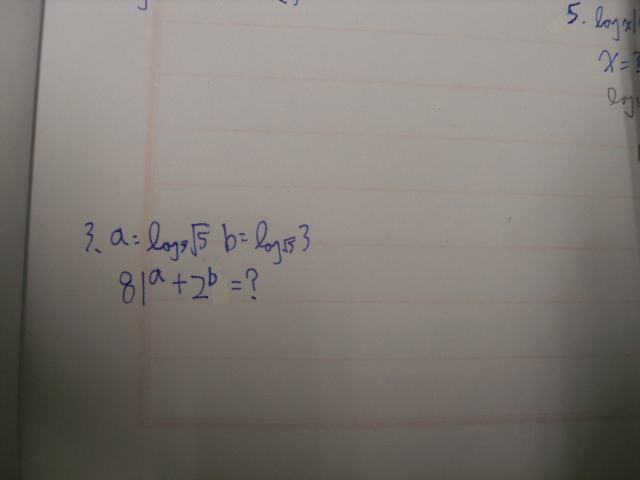 5. log x
x=
log
3. a = log₉√5 b = log 3
81ᵃ + 2ᵇ = ?